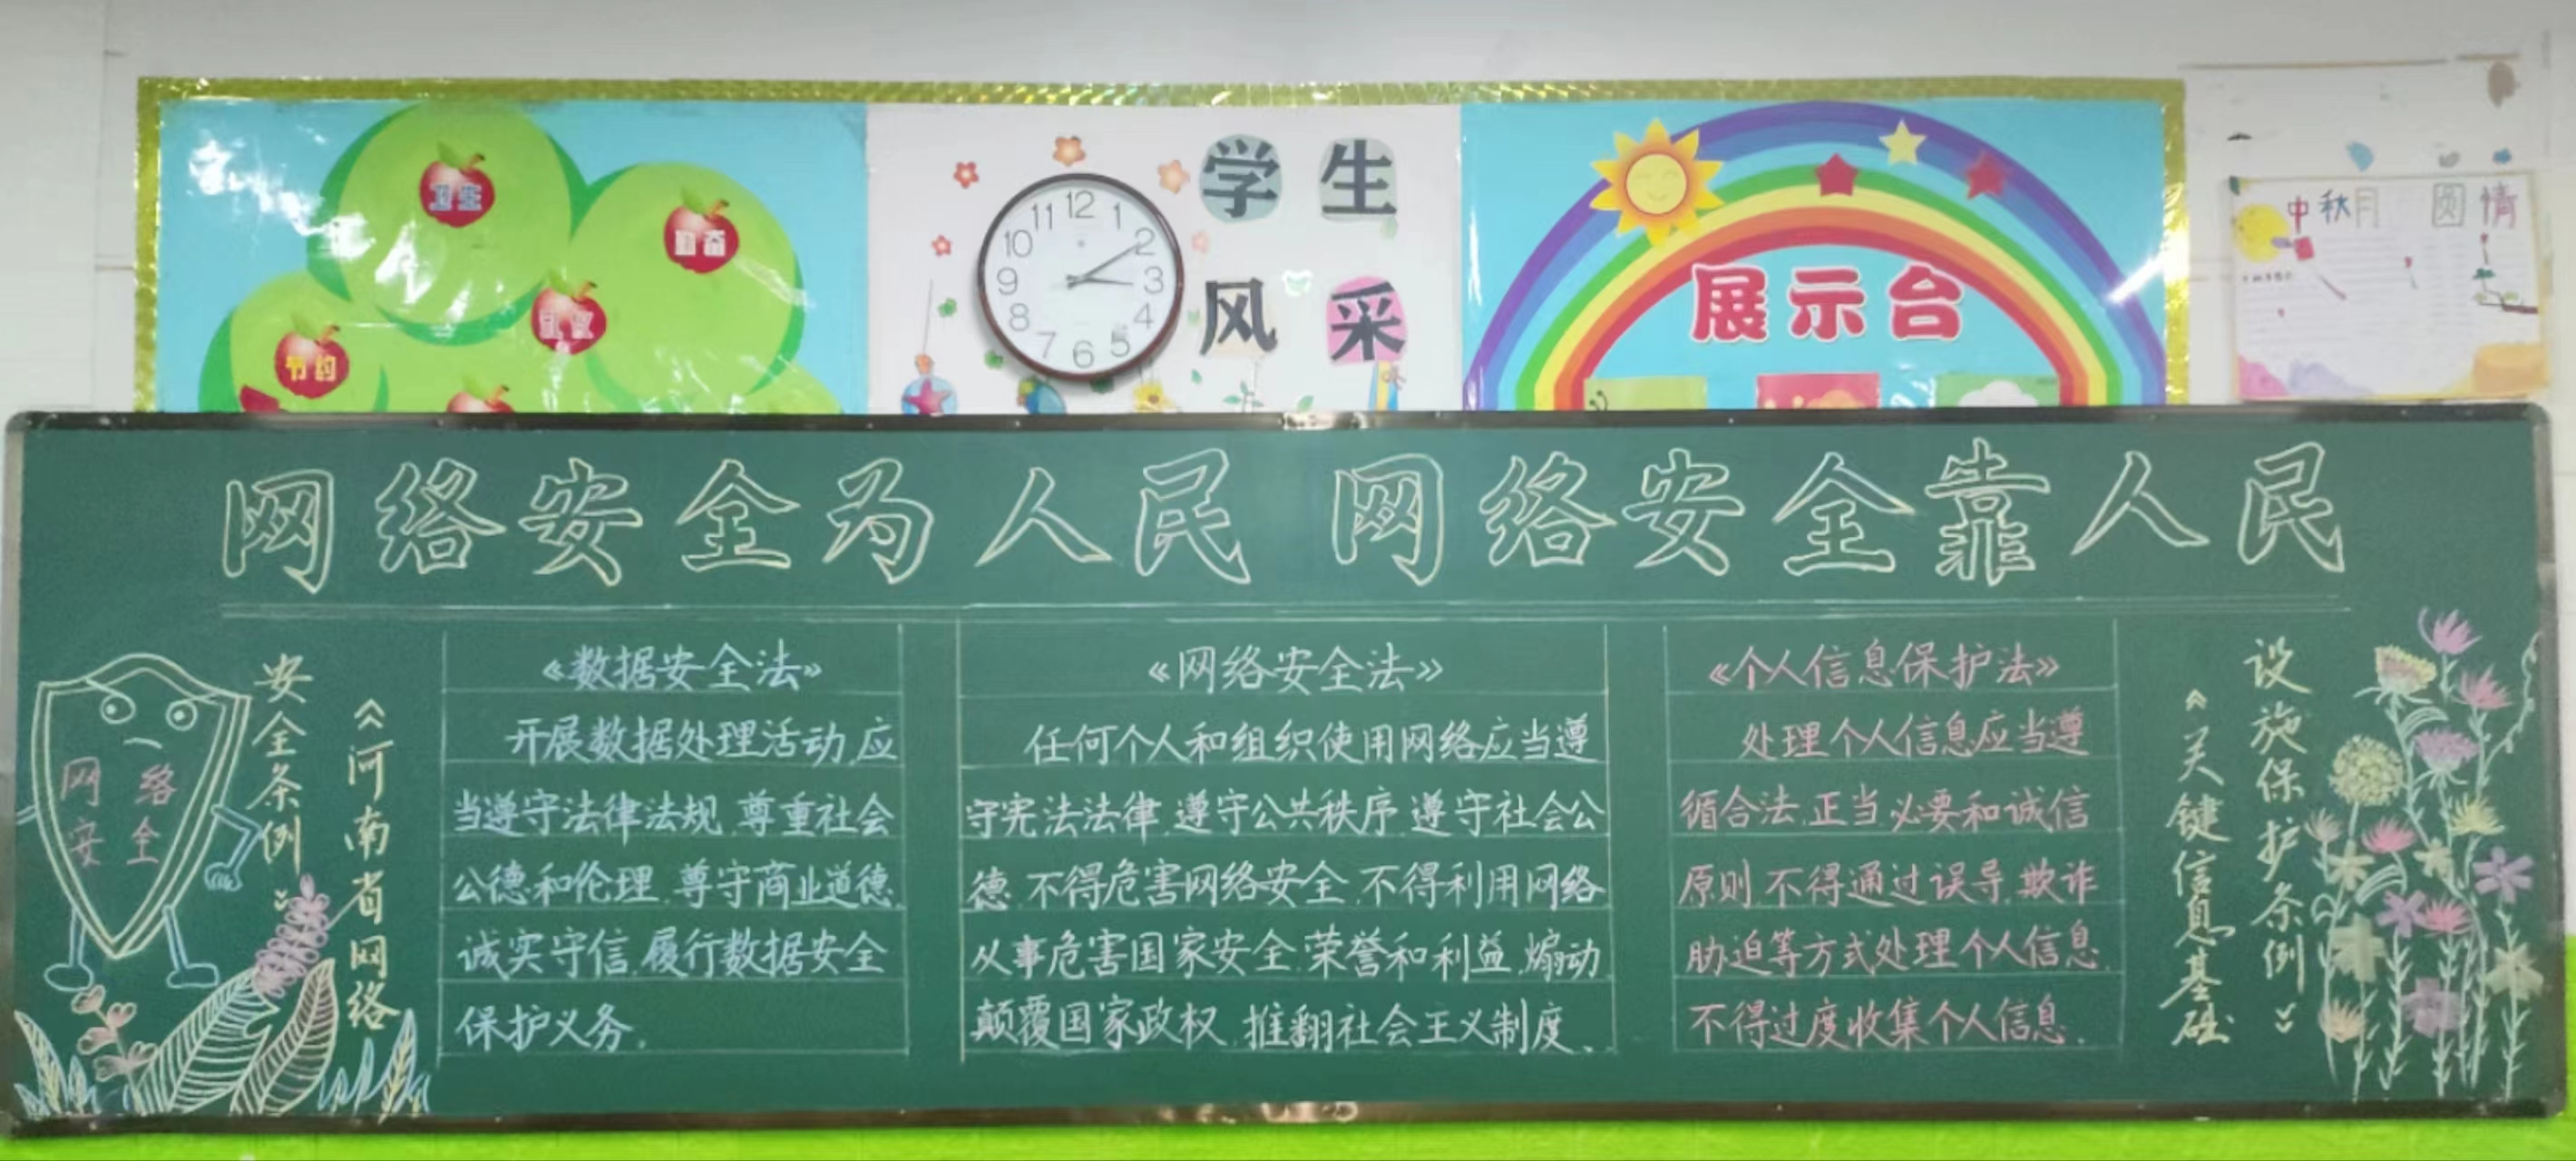 卫生
勤奋
礼仪
节约
12
1
2
3
4
5
6
7
8
9
10
11
学生
风采
展示台
中秋月圆情
网络安全为人民 网络安全靠人民
网络
安全
《河南省网络
安全条例》
《数据安全法》
开展数据处理活动,应
当遵守法律法规,尊重社会
公德和伦理,尊守商业道德,
诚实守信,履行数据安全
保护义务.
《网络安全法》
任何个人和组织使用网络应当遵
守宪法法律,遵守公共秩序,遵守社会公
德,不得危害网络安全,不得利用网络
从事危害国家安全,荣誉和利益,煽动
颠覆国家政权,推翻社会主义制度、
《个人信息保护法》
处理个人信息应当遵
循合法,正当必要和诚信
原则,不得通过误导,欺诈
胁迫等方式处理个人信息,
不得过度收集个人信息.
《关键信息基础
设施保护条例》